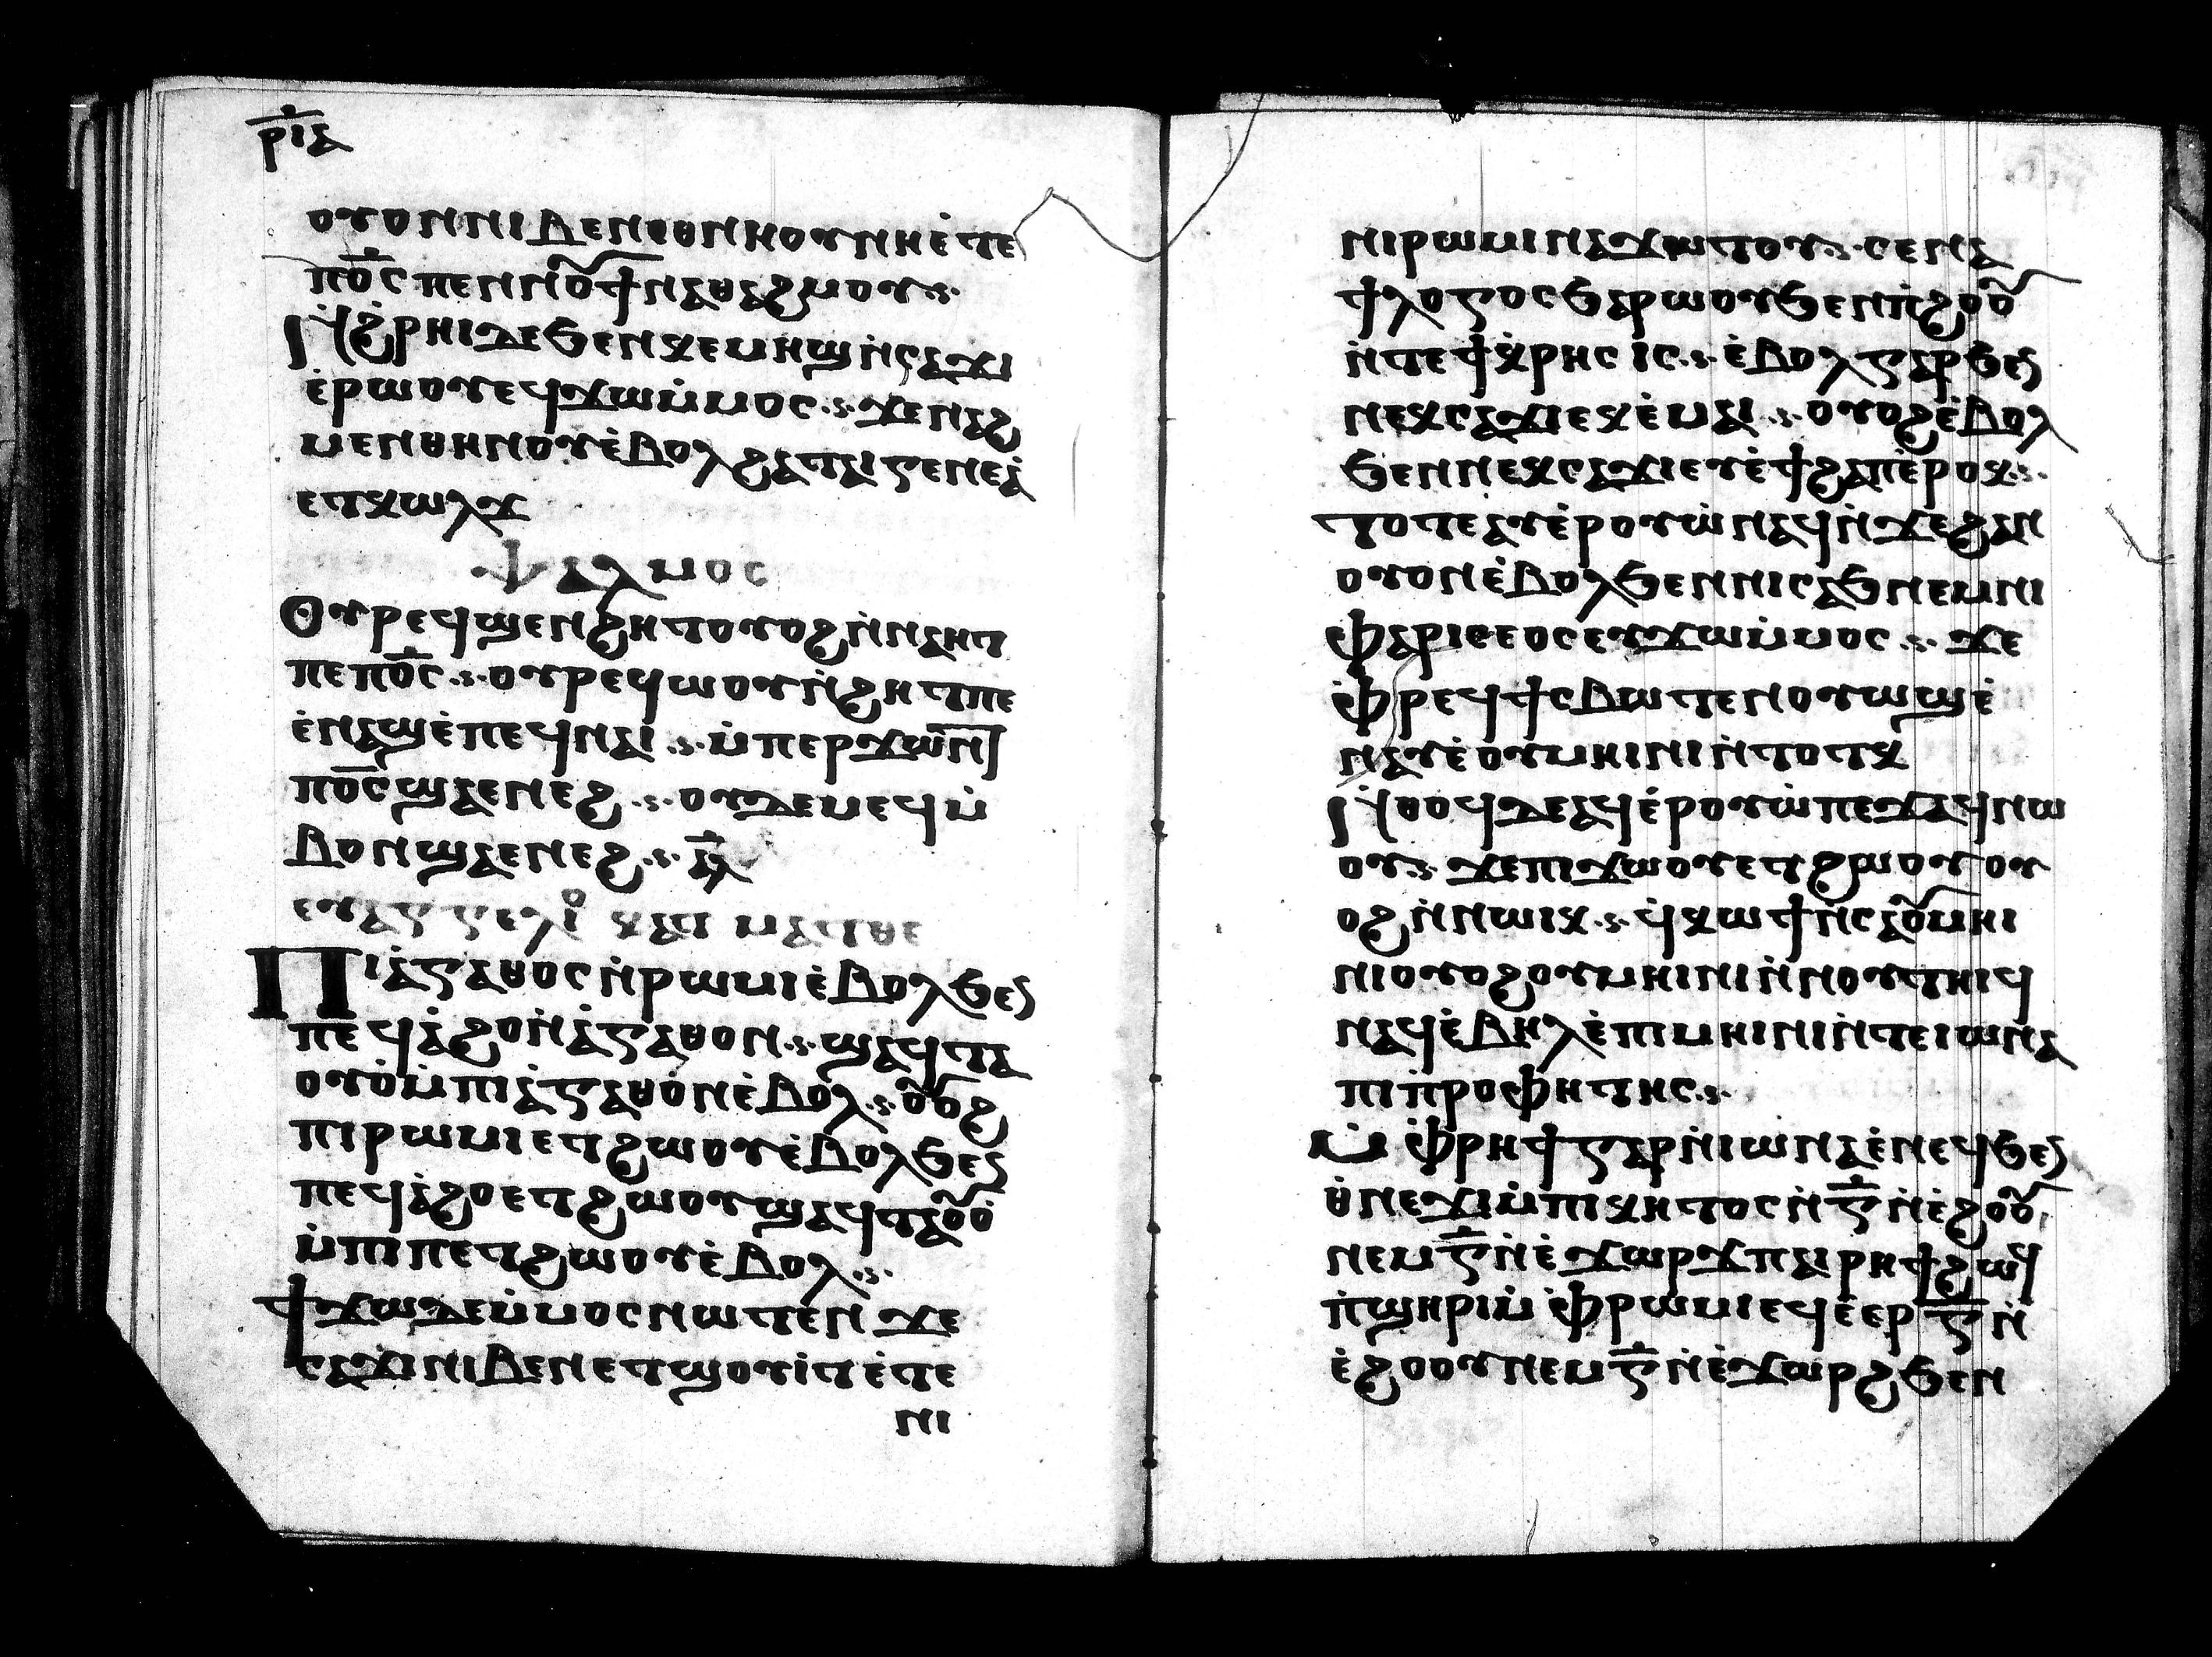 ⲣⲓⲇ
ⲟⲩⲟⲛ ⲛⲓⲃⲉⲛ ⲉⲑⲛⲏⲟⲩ ⲛⲏⲉ̇ⲧⲉ
ⲡⲟ̅ⲥ̅ ⲡⲉⲛⲛⲟⲩϯ ⲛⲁⲑⲁϩⲙⲟⲩ
Ⲛ̇ϩ̇ⲣⲏⲓ ⲇⲉ ϧⲉⲛ ⲕⲉⲙⲏϣ ⲛ̇ⲥⲁϫⲓ
ⲉ̇ⲣⲱⲟⲩ ⲉϥϫⲱ ⲙ̇ⲙⲟⲥ ϫⲉ ⲛⲁϩ
ⲙⲉⲛ ⲑⲏⲛⲟⲩ ⲉ̇ⲃⲟⲗϩⲁ ⲧⲁⲓ ⲅⲉⲛⲉⲁ̇
ⲉⲧⲕⲱⲗϫ
ⲯⲁⲗⲙⲟⲥ
Ⲟⲩⲣⲉϥϣⲉⲛϩⲏⲧ ⲟⲩⲟϩ ⲛ̇ⲛⲁⲏⲧ
ⲡⲉ ⲡⲟ̅ⲥ̅ ⲟⲩⲣⲉϥⲱⲟⲩⲛ̇ϩⲏⲧ ⲡⲉ
ⲉ̇ⲛⲁϣⲉ̇ ⲡⲉϥⲛⲁⲓ ⲙ̇ⲡⲉⲣϫⲱⲛⲧ
ⲡⲟ̅ⲥ̅ ϣⲁ ⲉⲛⲉϩ ⲟⲩⲇⲉ ⲙⲉϥⲙ̇
ⲃⲟⲛ ϣⲁ ⲉⲛⲉϩ
ⲉⲩⲁⲅⲅⲉⲗⲓⲟ ⲕⲁⲧⲁ ⲙⲁⲧⲑⲉ
Ⲡⲓⲁ̇ⲅⲁⲑⲟⲥ ⲛ̇ⲣⲱⲙⲓ ⲉ̇ⲃⲟⲗϧⲉⲛ
ⲡⲉϥⲁ̇ϩⲟ ⲛ̇ⲁ̇ⲅⲁⲑⲟⲛ ϣⲁϥⲧⲁ
ⲟⲩⲟ̇ ⲙ̇ⲡⲓⲁ̇ⲅⲁⲑⲟⲛ ⲉ̇ⲃⲟⲗ ⲟⲩⲟϩ
ⲡⲓⲣⲱⲙⲓ ⲉⲧϩⲱⲟⲩ ⲉ̇ⲃⲟⲗϧⲉⲛ
ⲡⲉϥⲁ̇ϩⲟ ⲉⲧϩⲱⲟⲩ ϣⲁϥⲧⲁⲟⲩⲟ̇
ⲙ̇ⲡⲓⲡⲉⲧϩⲱⲟⲩ ⲉ̇ⲃⲟⲗ
Ϯϫⲱ ⲇⲉ ⲙ̇ⲙⲟⲥ ⲛⲱⲧⲉⲛ ϫⲉ
ⲥⲁϫⲓ ⲛⲓⲃⲉⲛ ⲉⲧϣⲟⲩⲓⲧ ⲉ̇ⲧⲉ
ⲛⲓ
ⲛⲓⲣⲱⲙⲓ ⲛⲁϫⲟⲧⲟⲩ ⲥⲉⲛⲁ
ϯⲗⲟⲅⲟⲥ ϧⲁⲣⲱⲟⲩ ϧⲉⲛ ⲡ̇ⲉϩⲟⲟⲩ
ⲛ̇ⲧⲉ ϯⲕ̇ⲣⲏⲥⲓⲥ ⲉ̇ⲃⲟⲗ ⲅⲁⲣ ϧⲉⲛ
ⲛⲉⲕⲥⲁϫⲓ ⲉⲕⲉ̇ⲙⲁⲓ ⲟⲩⲟϩ ⲉ̇ⲃⲟⲗ
ϧⲉⲛ ⲛⲉⲕⲥⲁϫⲓ ⲉⲩⲉ̇ϯϩⲁⲡ ⲉ̇ⲣⲟⲕ
ⲧⲟⲧⲉ ⲁⲩⲉ̇ⲣⲟⲩⲱ̇ ⲛⲁϥ ⲛ̇ϫⲉ ϩⲁⲛ
ⲟⲩⲟⲛ ⲉ̇ⲃⲟⲗϧⲉⲛ ⲛⲓⲥⲁϧ ⲛⲉⲙ ⲛⲓ
ⲫⲁⲣⲓⲥⲉⲟⲥ ⲉⲩϫⲱ ⲙ̇ⲙⲟⲥ ϫⲉ
ⲫ̇ⲣⲉϥϯⲥⲃⲱ ⲧⲉⲛⲟⲩⲱϣ ⲉ̇
ⲛⲁⲩ ⲉ̇ⲟⲩⲙⲏⲓⲛⲓ ⲛ̇ⲧⲟⲧⲕ
Ⲛ̇ⲑⲟϥ ⲇⲉ ⲁϥⲉ̇ⲣⲟⲩⲱ̇ ⲡⲉϫⲁϥ ⲛⲱ
ⲟⲩ ϫⲉ ⲡⲓϫⲱⲟⲩ ⲉⲧϩⲱⲟⲩ ⲟⲩ
ⲟϩ ⲛ̇ⲛⲱⲓⲕ ϥ̇ⲕⲱϯ ⲛ̇ⲥⲁ ⲟⲩⲙⲏⲓ
ⲛⲓ ⲟⲩⲟϩ ⲟⲩⲙⲏⲓⲛⲓ ⲛ̇ⲛⲟⲩⲧⲏⲓϥ
ⲛⲁϥ ⲉ̇ⲃⲏⲗ ⲉ̇ⲡⲓⲙⲏⲓⲛⲓ ⲛ̇ⲧⲉ ⲓⲱⲛⲁ
ⲡⲓⲡ̇ⲣⲟⲫⲏⲧⲏⲥ
Ⲙ̇ⲫ̇ⲣⲏϯ ⲅⲁⲣ ⲛ̇ⲓⲱⲛⲁ ⲉ̇ⲛⲉϥ ϧⲉⲛ
ⲑ̇ⲛⲉϫⲓ ⲙ̇ⲡⲓⲕⲏⲧⲟⲥ ⲛ̇ⲅ̅ ⲛ̇ⲉ̇ϩⲟⲟⲩ
ⲛⲉⲙ ⲅ̅ ⲛ̇ⲉ̇ϫⲱⲣϩ ⲡⲁⲓⲣⲏϯ ϩⲱϥ
ⲡ̇ϣⲏⲣⲓ ⲙ̇ⲫ̇ⲣⲱⲙⲓ ⲉϥⲉ̇ⲉⲣ ⲅ̅ ⲛ̇
ⲉ̇ϩⲟⲟⲩ ⲛⲉⲙ ⲅ̅ ⲛ̇ⲉ̇ϫⲱⲣϩ ϧⲉⲛ